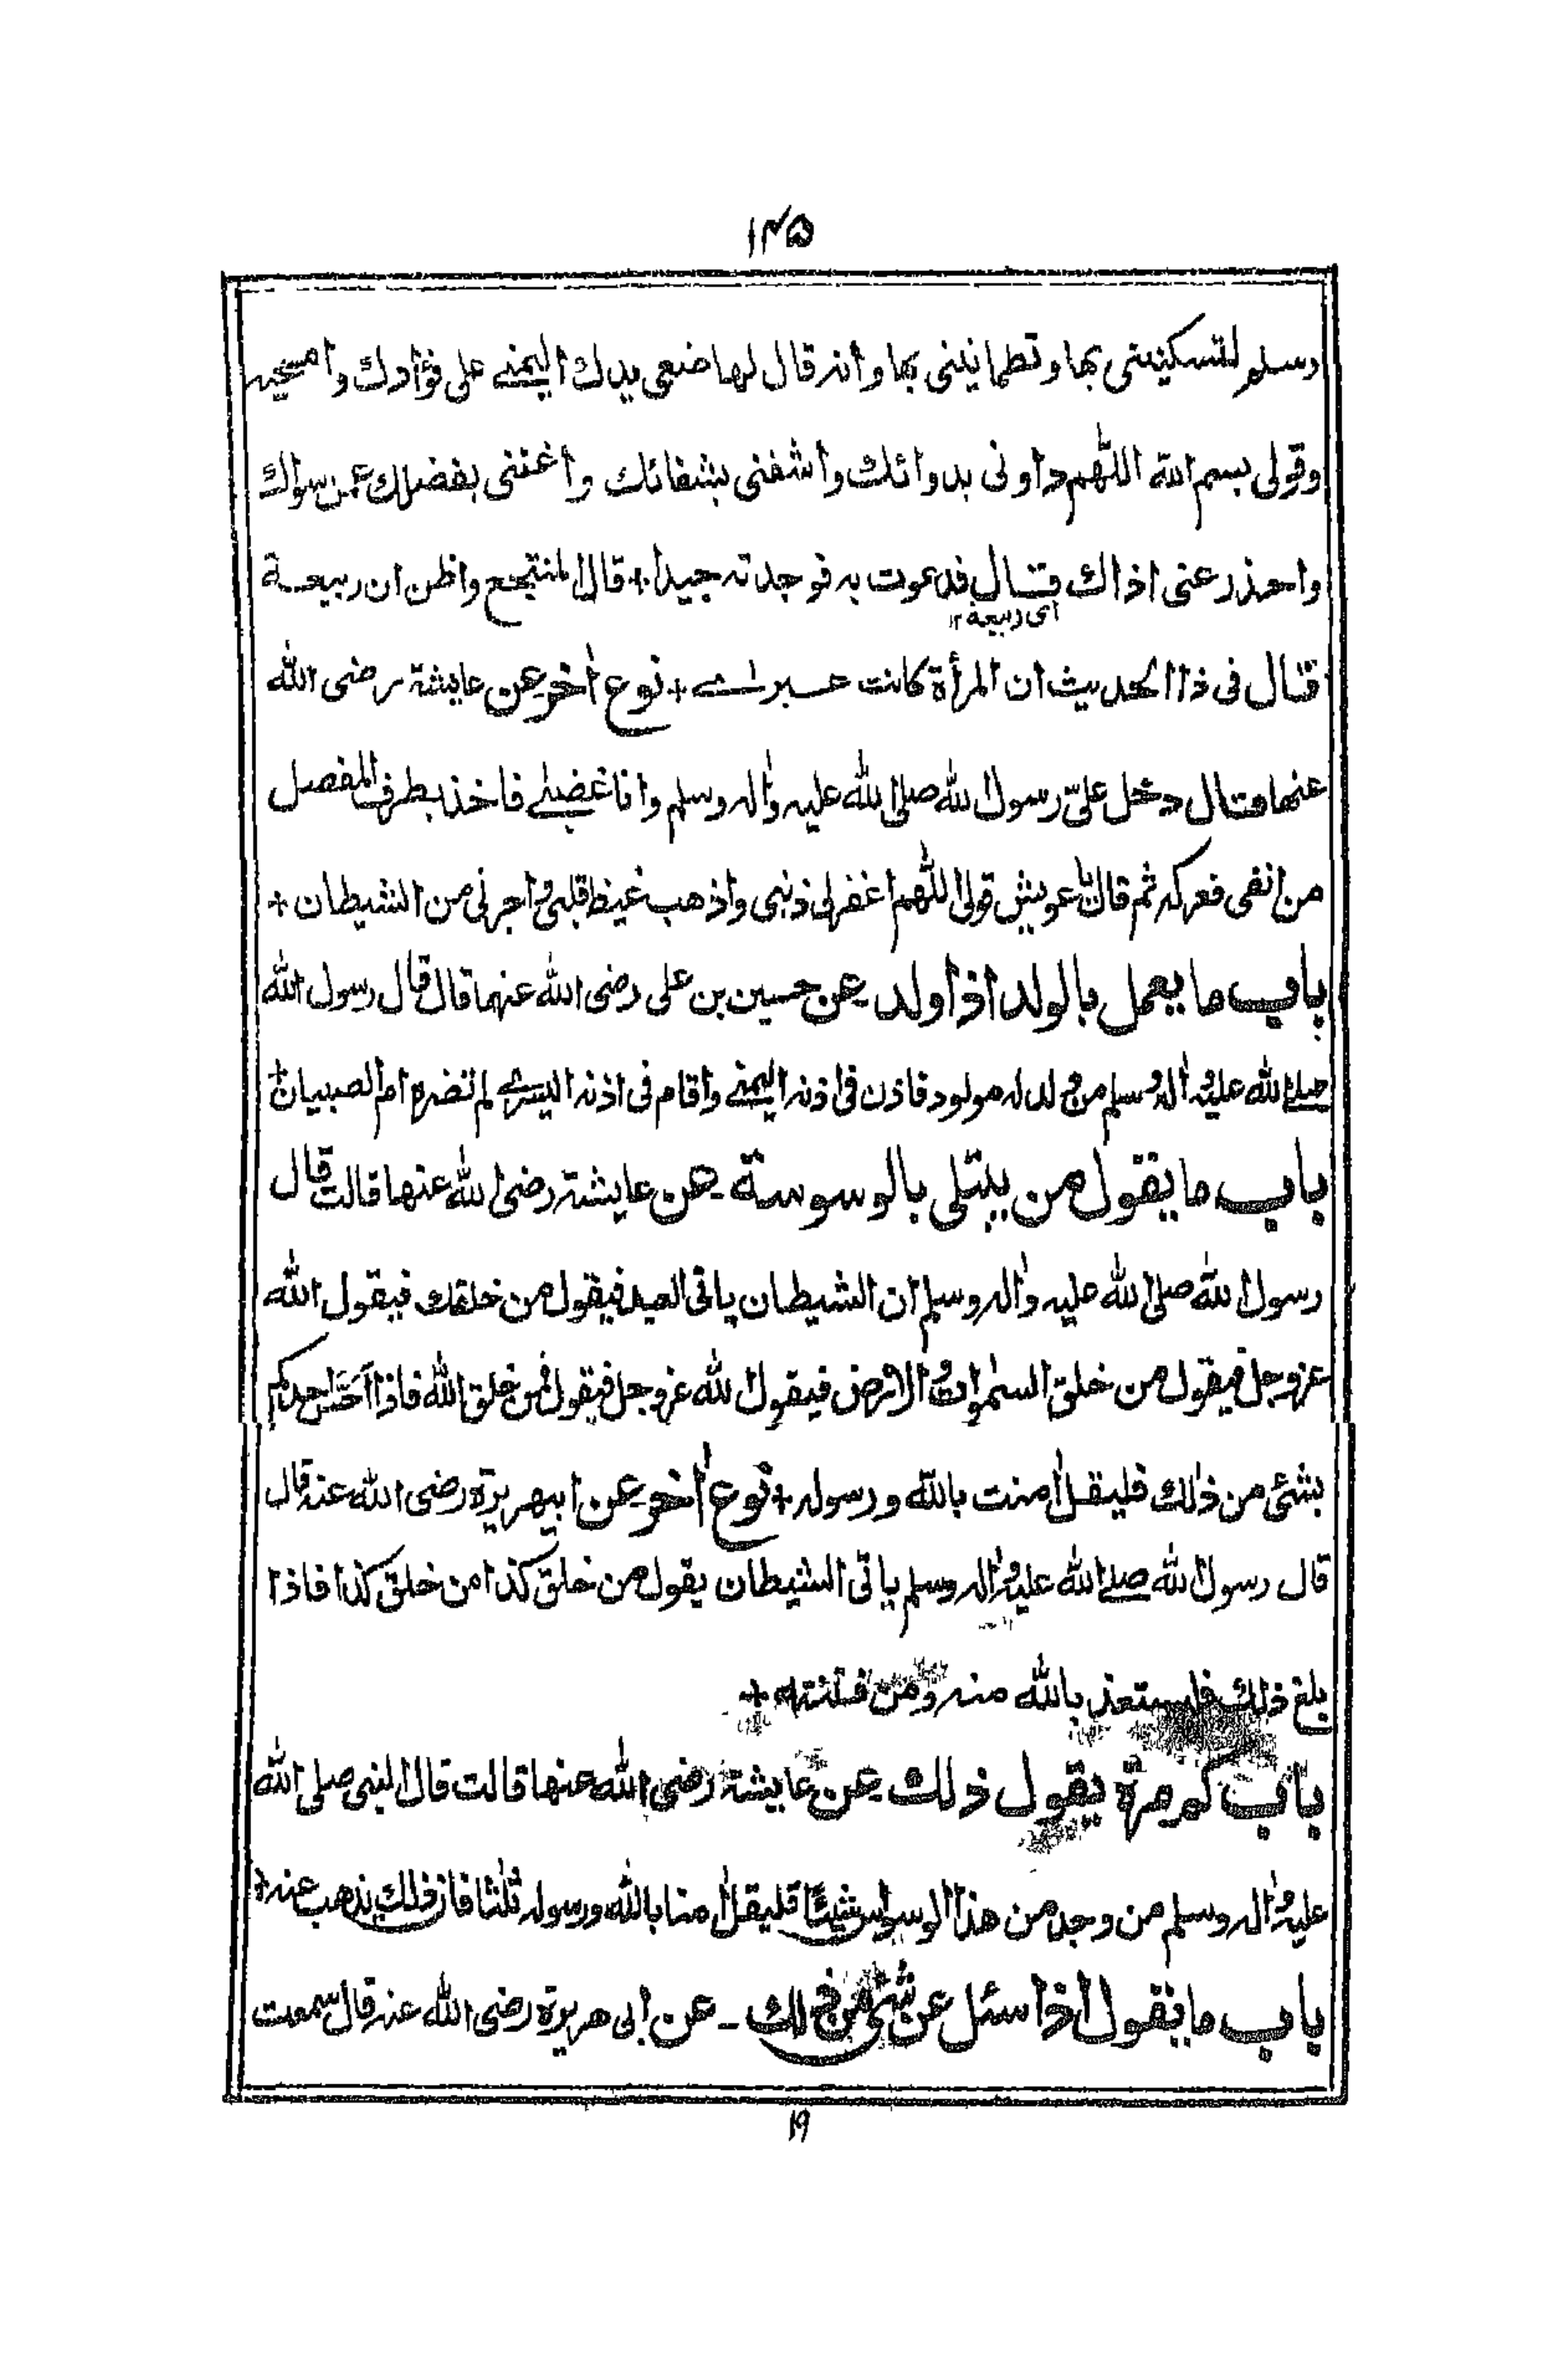 ۱۴۵
وسلم لتسكنينى بها وتطمانينى بها وانه قال لها ضعى يدك اليمنے على فؤادك وامسحيه
وقولى بسم الله اللّٰهم داونى بدوائك واشفنى بشفائك واغننى بفضلك عمن سواك
واحذر عنى اذاك قال فدعوت به فوجدته جيدا + قال المنتجع واظن ان ربيعة
اى ربيعة ۱۲
قال فى ذا الحديث ان المرأة كانت غيراے + نوع اٰخر عن عايشة رضى الله
عنها قال دخل علىّ رسول الله صلى الله عليه واٰله وسلم وانا غضبے فاخذ بطرف المفصل
من انفى فعركه ثم قال يا عويش قولى اللّٰهم اغفر لى ذنبى واذهب غيظ قلبى واجرنى من الشيطان +
باب ما يعمل بالولد اذا ولد عن حسين بن على رضى الله عنهما قال قال رسول الله
صلے الله عليه واٰله وسلم من ولد له مولود فاذن فى اذنه اليمنے واقام فى اذنه اليسرے لم تضره ام الصبيان +
باب ما يقول من يبتلى بالوسوسة عن عايشة رضى الله عنها قالت قال
رسول الله صلى الله عليه واٰله وسلم ان الشيطان ياتى العبد فيقول من خلقك فيقول الله
عز وجل فيقول من خلق السمٰوات والارض فيقول الله عز وجل فيقول فمن خلق الله فاذا احس احدكم
بشئ من ذٰلك فليقل اٰمنت بالله ورسوله + نوع اٰخر عن ابيهريرة رضى الله عنه قال
قال رسول الله صلے الله عليه واٰله وسلم ياتى الشيطان يقول من خلق كذا من خلق كذا فاذا
بلغ ذلك فليستعذ بالله منه ومن فتنته +
باب كم مرة يقول ذلك عن عايشة رضى الله عنها قالت قال النبى صلى الله
عليه واٰله وسلم من وجد من هذا الوسواس شيئًا فليقل اٰمنا بالله ورسوله ثلٰثا فان ذلك يذهب عنه +
باب ما يقول اذا سئل عن شئ من ذلك ـ عن ابى هريرة رضى الله عنه قال سمعت
۱۹